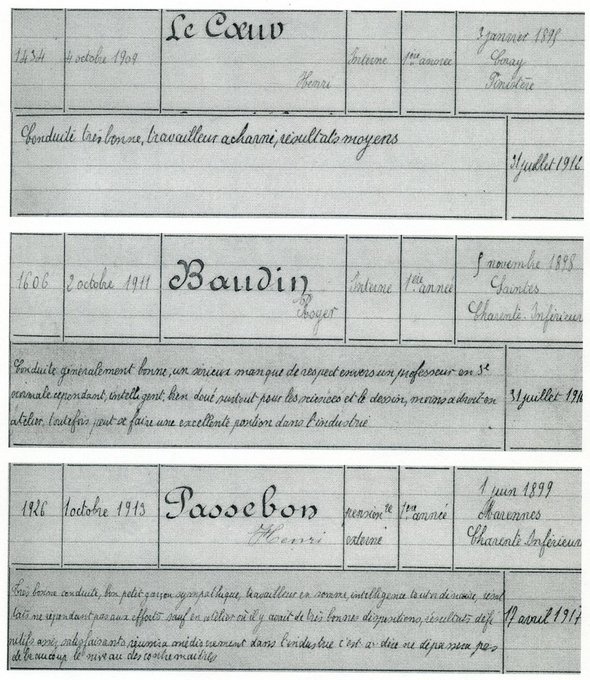 1434
4 octobre 1909
Le Cœuv
Henri
Interne
1ère année
3 janvier 1895
Coray
Finistère
Conduite très bonne, travailleur acharné, résultats moyens
31 juillet 1912
1606
2 octobre 1911
Baudin
Roger
Interne
1ère année
5 novembre 1898
Saintes
Charente-Inférieure
Conduite généralement bonne, un sérieux manque de respect envers un professeur en 3e
normale cependant, intelligent, bien doué surtout pour les sciences et le dessin, moins adroit en
atelier, toutefois peut se faire une excellente position dans l'industrie
31 juillet 1916
1926
1 octobre 1913
Passebon
Henri
pensionre
externe
1ère année
1 juin 1899
Marennes
Charente Inférieure
Très bonne conduite, bon petit garçon sympathique, travailleur en somme, intelligence lourde
tats ne répondant pas aux efforts sauf en atelier où il y avait de très bonnes dispositions, résultats défi
nitifs assez satisfaisants, réussira médiocrement dans l'industrie c'est à dire ne dépassera pas
de beaucoup le niveau des contremaîtres
17 avril 1917